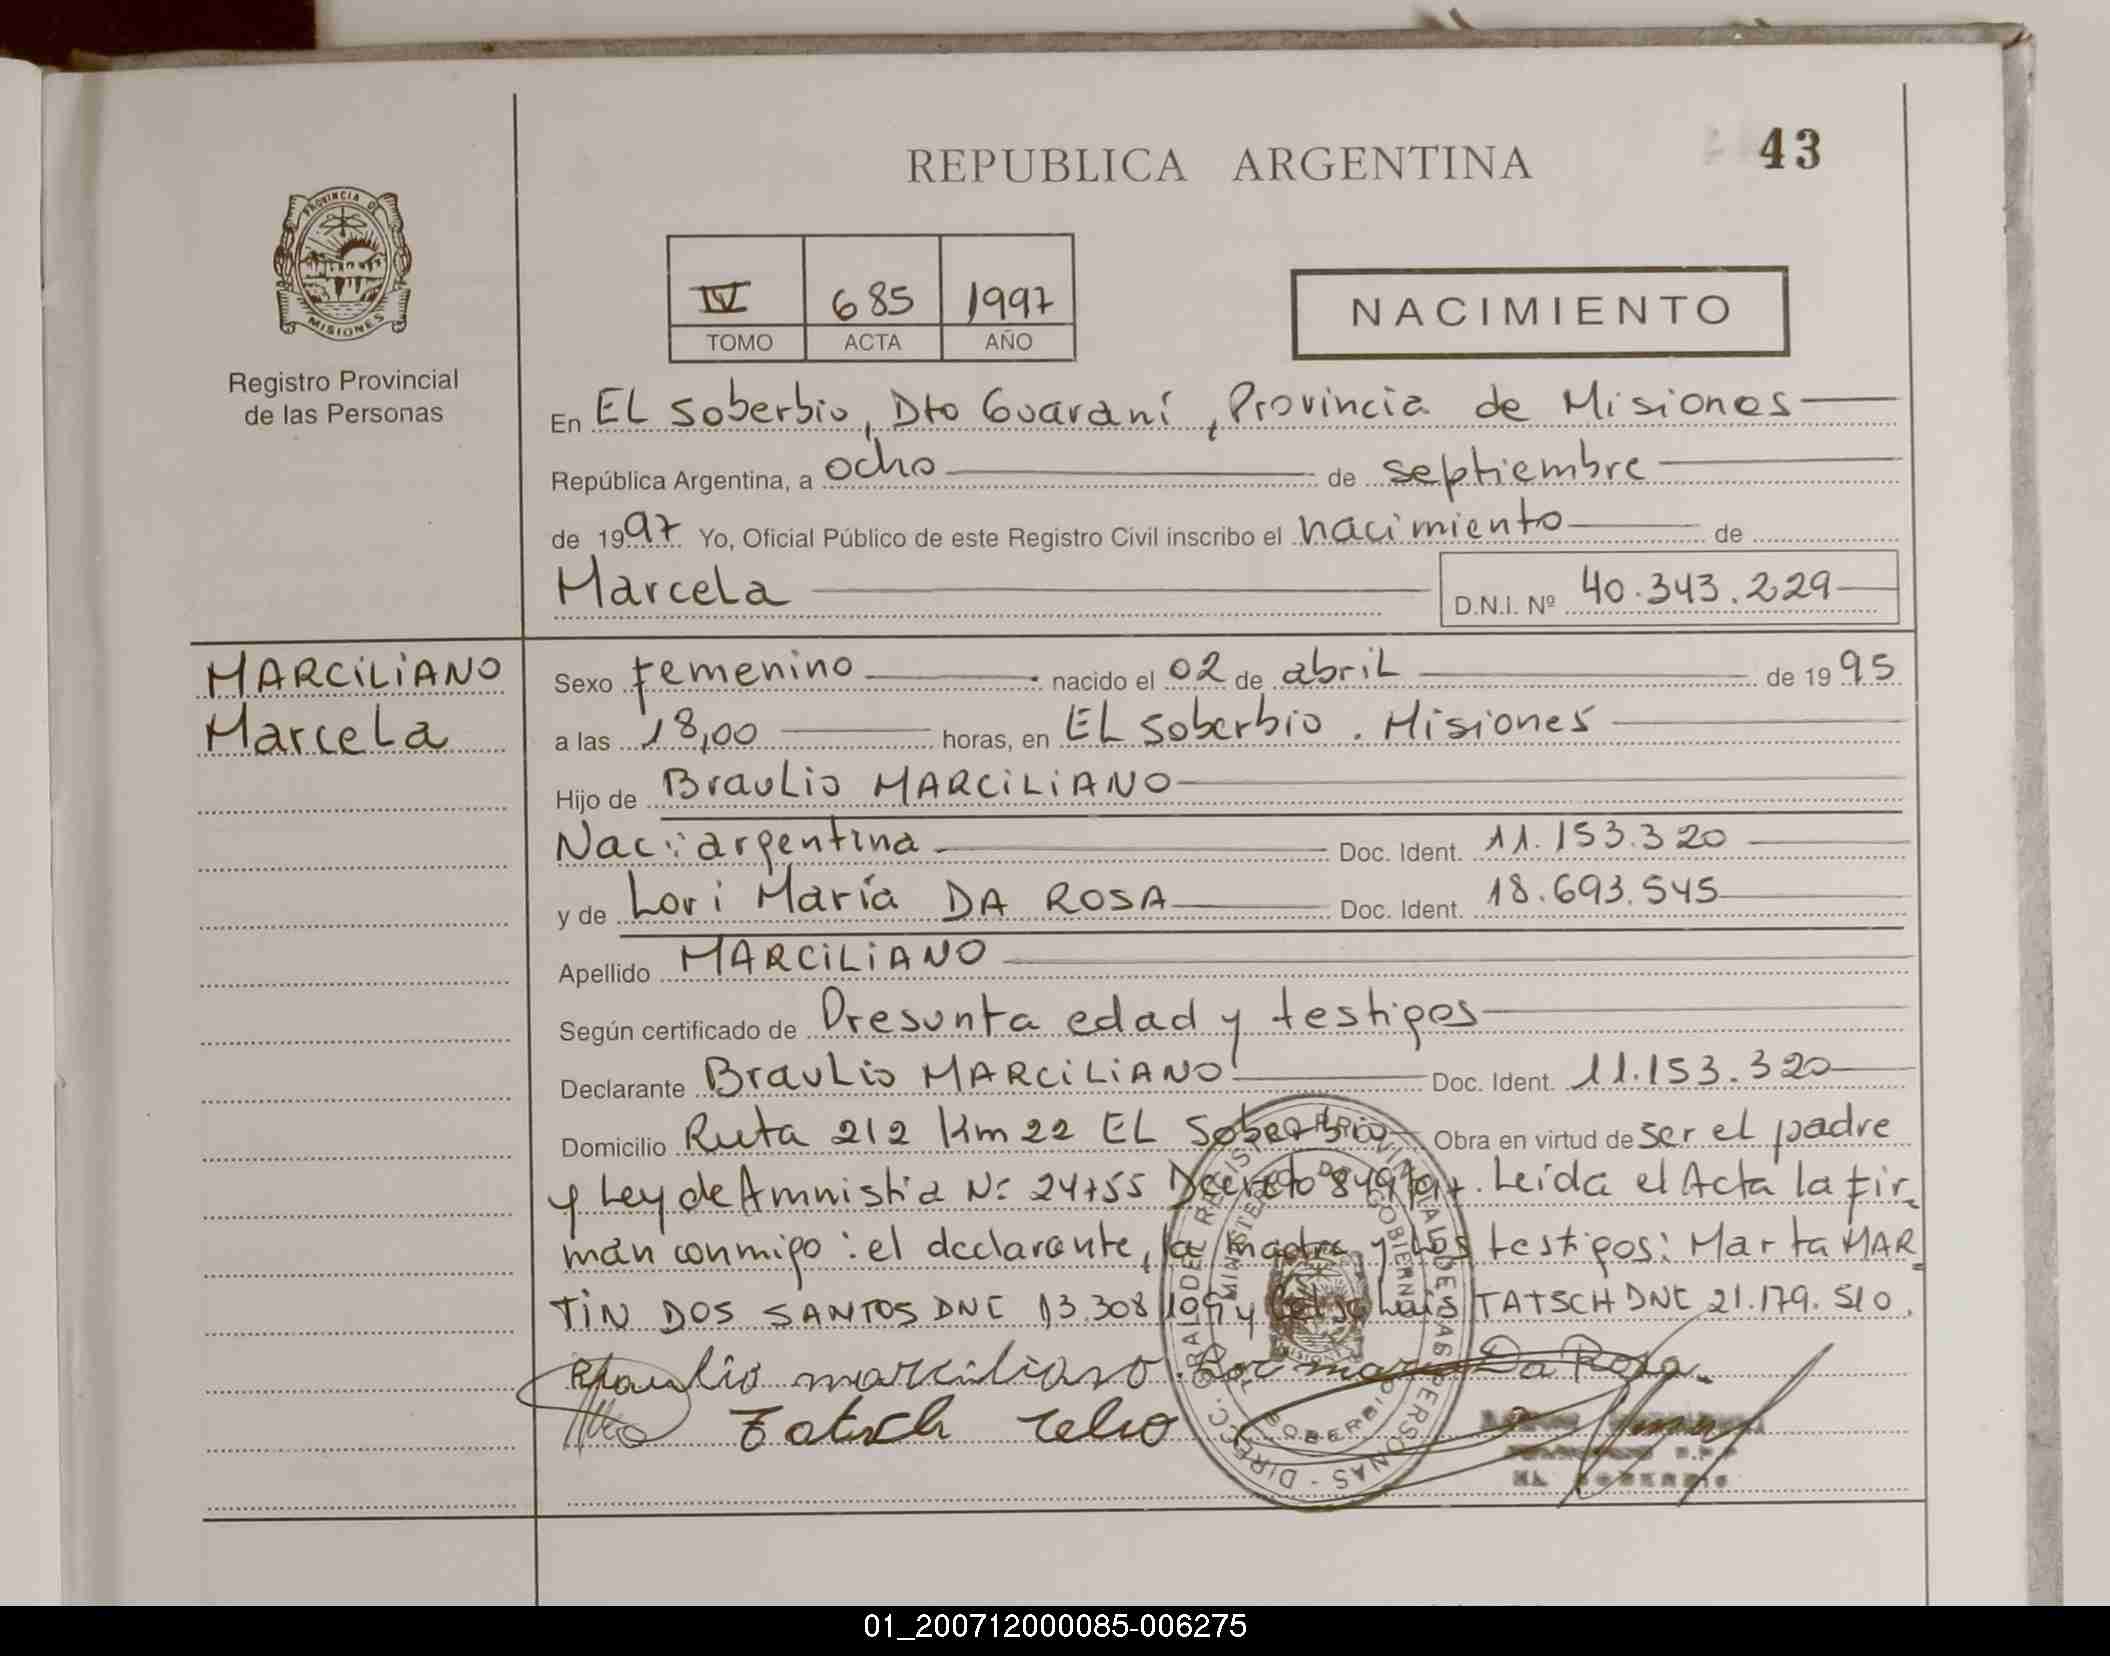 43
REPUBLICA ARGENTINA
PROVINCIA DE
MISIONES
Registro Provincial
de las Personas
IV 685 1997
TOMO ACTA AÑO
NACIMIENTO
En EL Soberbio, Dto Guaraní, Provincia de Misiones
República Argentina, a ocho de septiembre
de 1997 Yo, Oficial Público de este Registro Civil inscribo el nacimiento de
Marcela D.N.I. Nº 40.343.229
MARCILIANO
Marcela
Sexo femenino nacido el 02 de abril de 1995
a las 18,00 horas, en EL Soberbio. Misiones
Hijo de Braulio MARCILIANO
Nac: argentina Doc. Ident. 11.153.320
y de Lori María DA ROSA Doc. Ident. 18.693.545
Apellido MARCILIANO
Según certificado de Presunta edad y testigos
Declarante Braulio MARCILIANO Doc. Ident. 11.153.320
Domicilio Ruta 212 Km 22 EL Soberbio Obra en virtud de ser el padre
y Ley de Amnistia Nº 24755 Decreto 849/97. Leída el Acta la fir_
man conmigo: el declarante, la madre y los testigos: Marta MAR_
TIN DOS SANTOS DNI 13.308 y TATSCH DNI 21.179.510.
Braulio marciliano. Lori maria Da Rosa.
Tatsch Celso
DIRECC. GRAL DEL REGISTRO PROVINCIAL DE LAS PERSONAS
MINISTERIO DE GOBIERNO
SOBERBIO
EL SOBERBIO
01_200712000085-006275